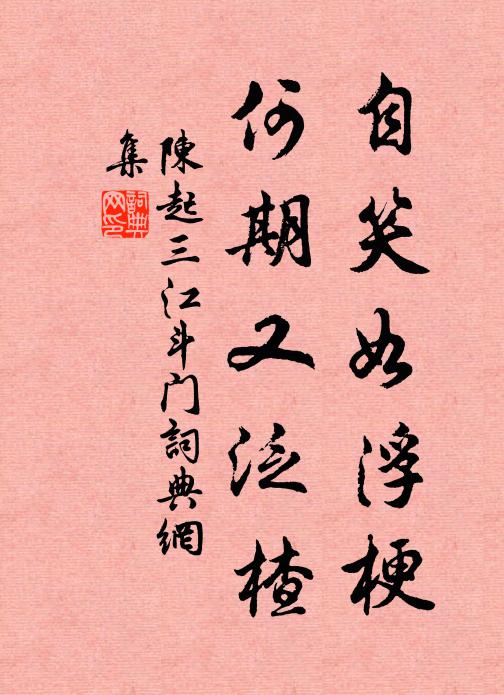 自笑如浮梗
何期又泛楂
陳起三江斗门詞典網
集
詞典
网印